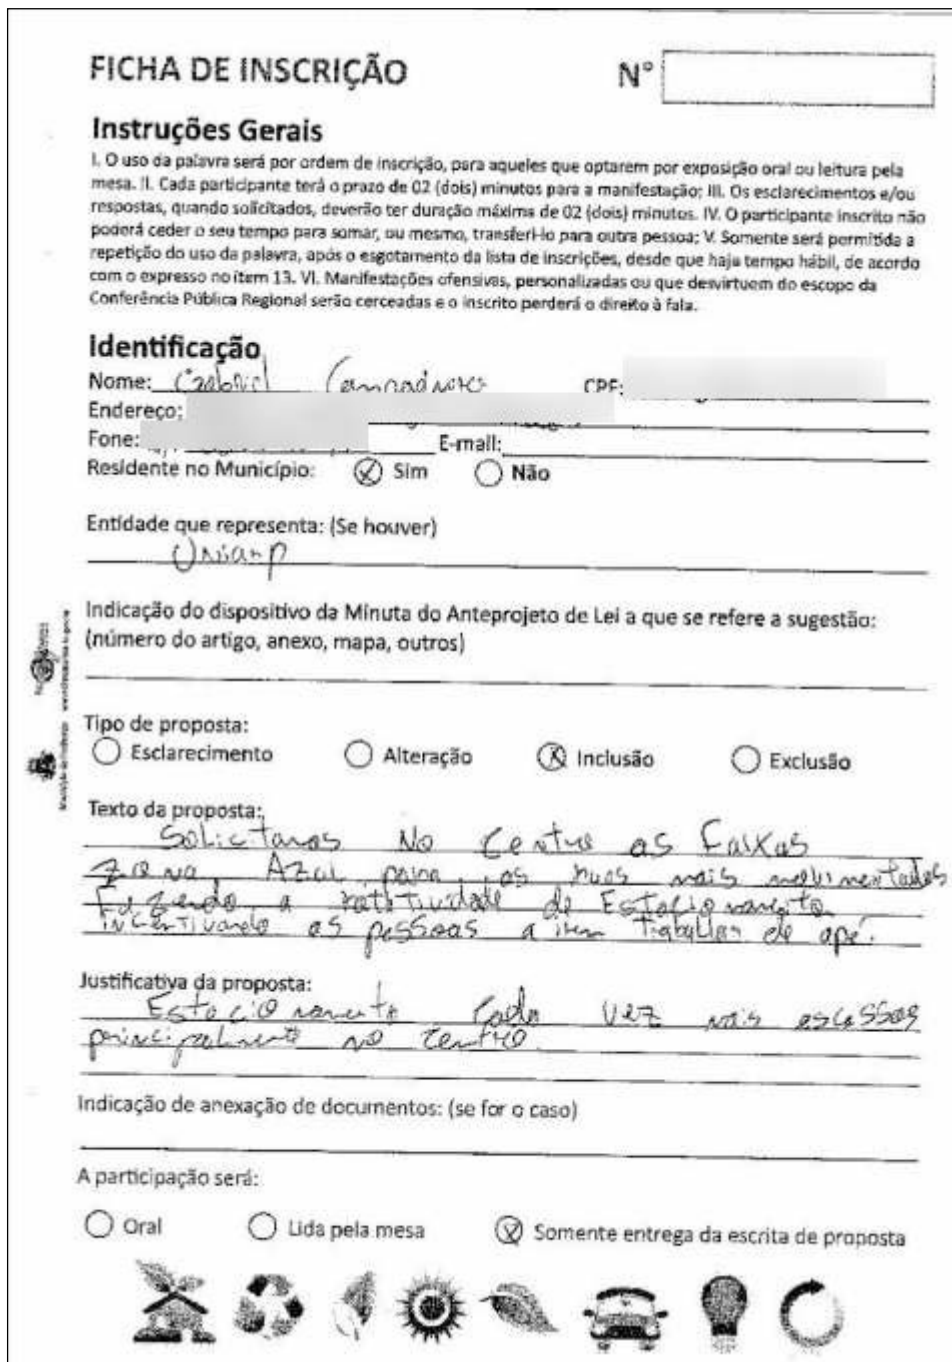 FICHA DE INSCRIÇÃO
N°
Instruções Gerais
I. O uso da palavra será por ordem de inscrição, para aqueles que optarem por exposição oral ou leitura pela
mesa. II. Cada participante terá o prazo de 02 (dois) minutos para a manifestação; III. Os esclarecimentos e/ou
respostas, quando solicitados, deverão ter duração máxima de 02 (dois) minutos. IV. O participante inscrito não
poderá ceder o seu tempo para somar, ou mesmo, transferi-lo para outra pessoa; V. Somente será permitida a
repetição do uso da palavra, após o esgotamento da lista de inscrições, desde que haja tempo hábil, de acordo
com o expresso no item 13. VI. Manifestações ofensivas, personalizadas ou que desvirtuem do escopo da
Conferência Pública Regional serão cerceadas e o inscrito perderá o direito à fala.
Identificação
Nome: Gabriel CPF:
Endereço:
Fone: E-mail:
Residente no Município: Sim Não
Entidade que representa: (Se houver)
Uniarp
Indicação do dispositivo da Minuta do Anteprojeto de Lei a que se refere a sugestão:
(número do artigo, anexo, mapa, outros)
Tipo de proposta:
Esclarecimento Alteração Inclusão Exclusão
Texto da proposta:
Solicitamos No Centro as Faixas
zona Azul para as ruas mais movimentadas
Fazendo a de Estacionamento
incentivando as pessoas a irem trabalhar de apé.
Justificativa da proposta:
Estacionamento Cada vez mais escassos
principalmente no centro
Indicação de anexação de documentos: (se for o caso)
A participação será:
Oral Lida pela mesa Somente entrega da escrita de proposta